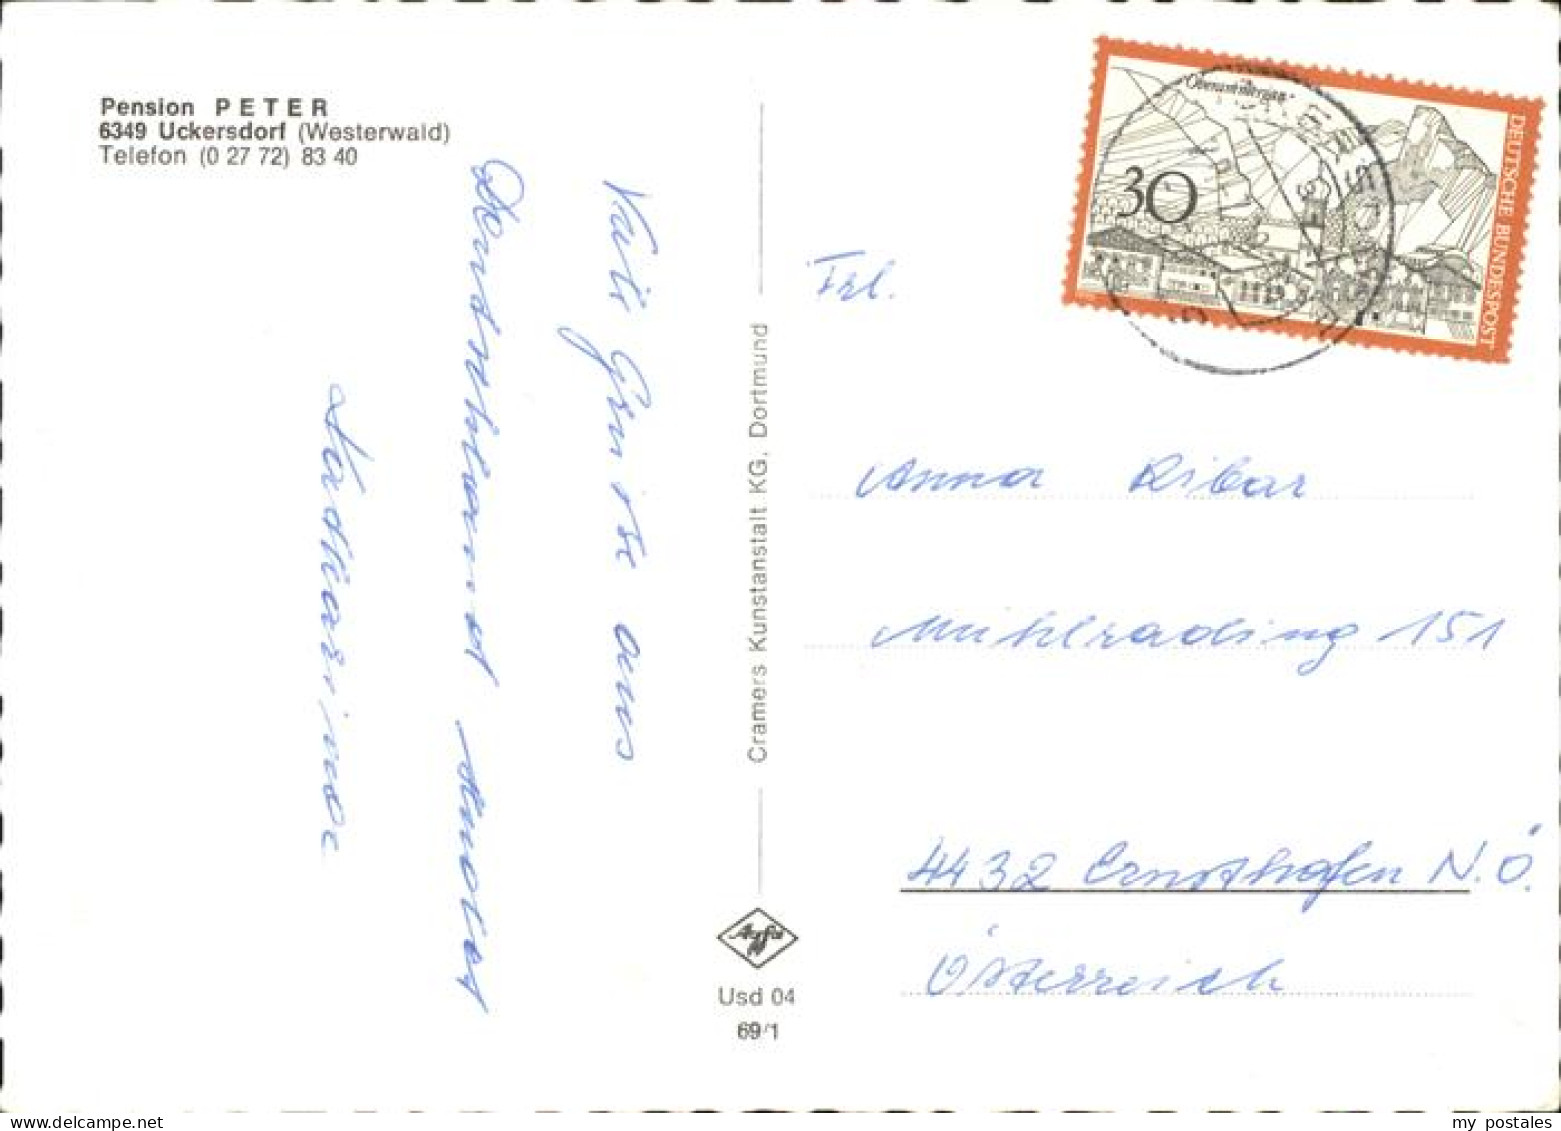 Pension PETER
6349 Uckersdorf (Westerwald)
Telefon (0 27 72) 83 40
Viele Grüße aus
Deutschland sendet
Katharina
Cramers Kunstanstalt KG, Dortmund
Agfa
Usd 04
69/1
"Oberammergau"
30
DEUTSCHE BUNDESPOST
Frl.
Anna Ribar
Mühlrading 151
4432 Ernsthofen N.Ö.
Österreich
my postales